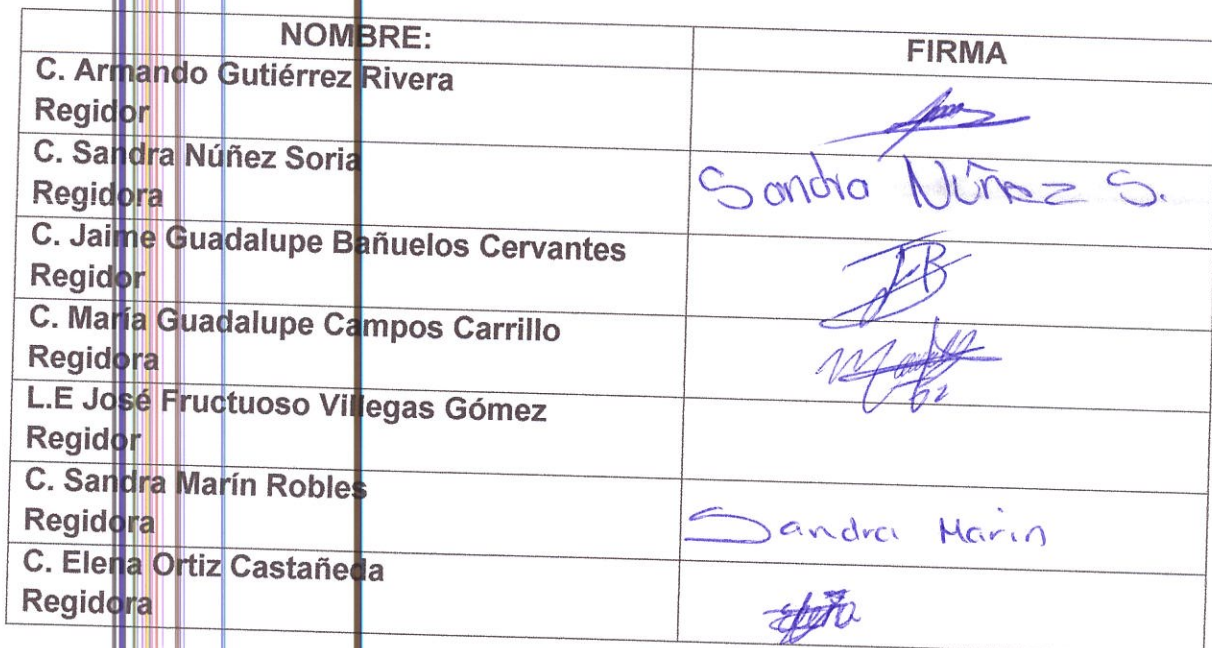 NOMBRE:
FIRMA
C. Armando Gutiérrez Rivera
Regidor
C. Sandra Núñez Soria
Regidora
Sandra Núñez S.
C. Jaime Guadalupe Bañuelos Cervantes
Regidor
C. María Guadalupe Campos Carrillo
Regidora
L.E José Fructuoso Villegas Gómez
Regidor
C. Sandra Marín Robles
Regidora
Sandra Marin
C. Elena Ortiz Castañeda
Regidora